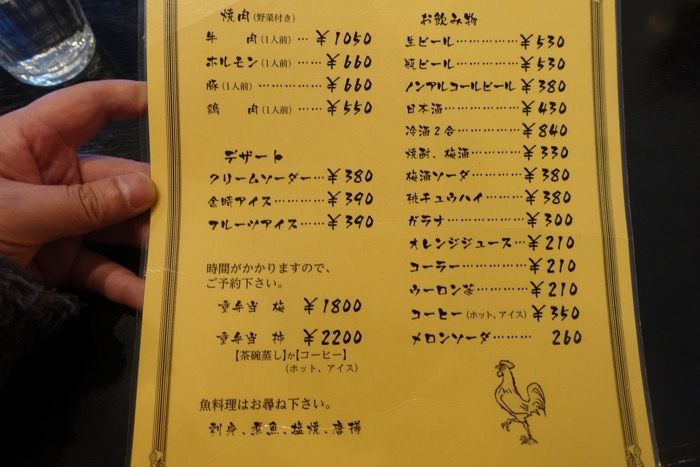 焼肉(野菜付き)
牛 肉(1人前)… ¥1050
ホルモン(1人前)… ¥660
豚(1人前)………… ¥660
鶏 肉(1人前)… ¥550
デザート
クリームソーダー…… ¥380
金時アイス……… ¥390
フルーツアイス…… ¥390
時間がかかりますので、
ご予約下さい。
重弁当 梅 ¥1800
重弁当 柿 ¥2200
【茶碗蒸し】か【コーヒー】
(ホット、アイス)
魚料理はお尋ね下さい。
刺身、煮魚、塩焼、唐揚
お飲み物
生ビール…………… ¥530
瓶ビール…………… ¥530
ノンアルコールビール… ¥380
日本酒……………… ¥430
冷酒2合…………… ¥840
焼酎、梅酒………… ¥330
梅酒ソーダ………… ¥380
桃チュウハイ……… ¥380
ガラナ……………… ¥300
オレンジジュース… ¥210
コーラー…………… ¥210
ウーロン茶………… ¥210
コーヒー(ホット、アイス) ¥350
メロンソーダ……… 260